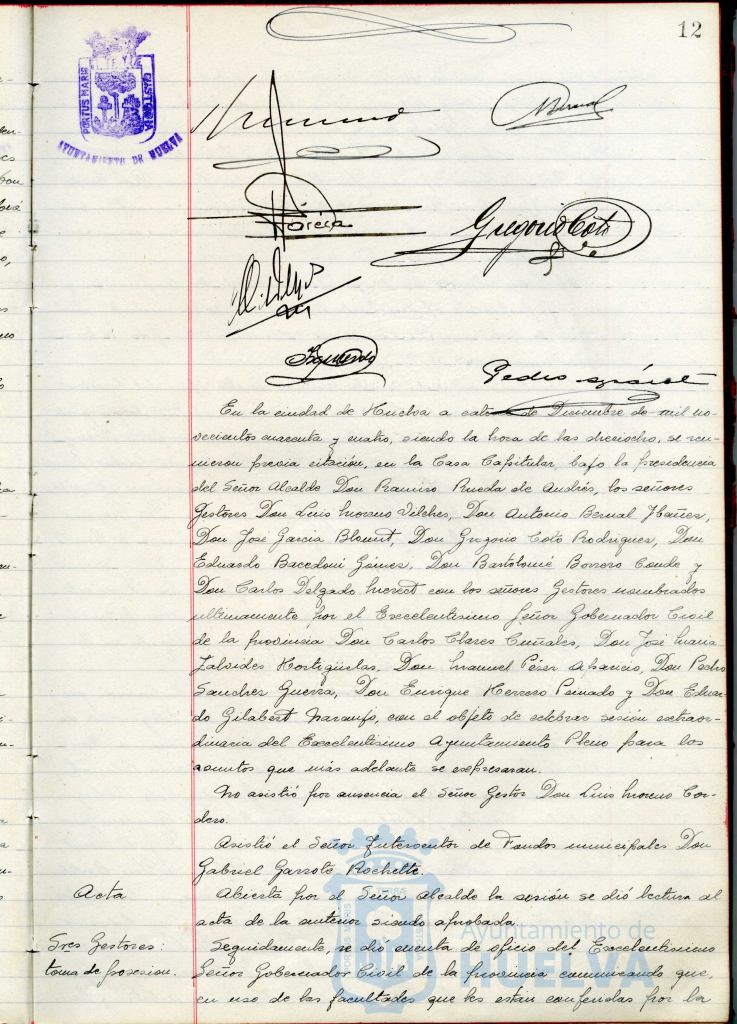 12
PORTUS MARIS ET TERRE CUSTODIA
AYUNTAMIENTO DE HUELVA
Bernal
García
Gregorio Coto
Izquierdo
Pedro
En la ciudad de Huelva a catorce de Diciembre de mil no-
vecientos cuarenta y cuatro, siendo la hora de las dieciocho, se reu-
nieron previa citación, en la Casa Capitular, bajo la presidencia
del Señor Alcalde Don Ramiro Rueda de Andrés, los señores
Gestores Don Luis Moreno Vilches, Don Antonio Bernal Ibañez,
Don José Garcia Blount, Don Gregorio Coto Rodriguez, Don
Eduardo Bacedoni Gómez, Don Bartolomé Borrero Conde y
Don Carlos Delgado con los señores Gestores nombrados
ultimamente por el Excelentisimo Señor Gobernador Civil
de la provincia Don Carlos Clares Cuñales, Don José Maria
Zalvides Hortigüelas, Don Manuel Pérez Aparicio, Don Pedro
Sanchez Guerra, Don Enrique Herrero Peinado y Don Eduar-
do Gilabert Naranjo, con el objeto de celebrar sesión extraor-
dinaria del Excelentisimo Ayuntamiento Pleno para los
asuntos que más adelante se expresaran.
No asistió por ausencia el Señor Gestor Don Luis Moreno Cor-
dero.
Asistió el Señor Interventor de Fondos municipales Don
Gabriel Garrote Rochette.
Acta
Abierta por el Señor Alcalde la sesión se dió lectura al
acta de la anterior siendo aprobada.
Sres Gestores:
toma de posesión.
Seguidamente, se dió cuenta de oficio del Excelentisimo
Señor Gobernador Civil de la provincia comunicando que,
en uso de las facultades que les están conferidas por la
Ayuntamiento de
HUELVA